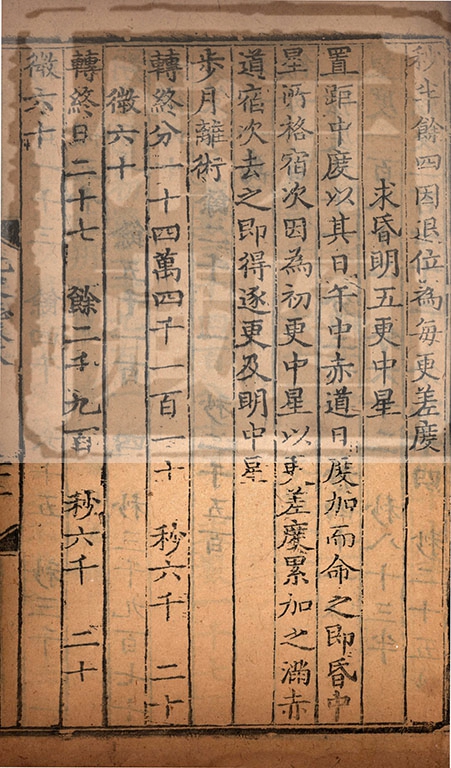 秒半餘四因退位為每更差度
求昏明五更中星
置距中度以其日午中赤道日度加而命之即昏中
星所格宿次因為初更中星以更差度累加之滿赤
道宿次去之即得逐更及明中星
步月離術
轉終分一十四萬四千一百一十 秒六千 二十
微六十
轉終日二十七 餘二千九百 秒六千 二十
微六十